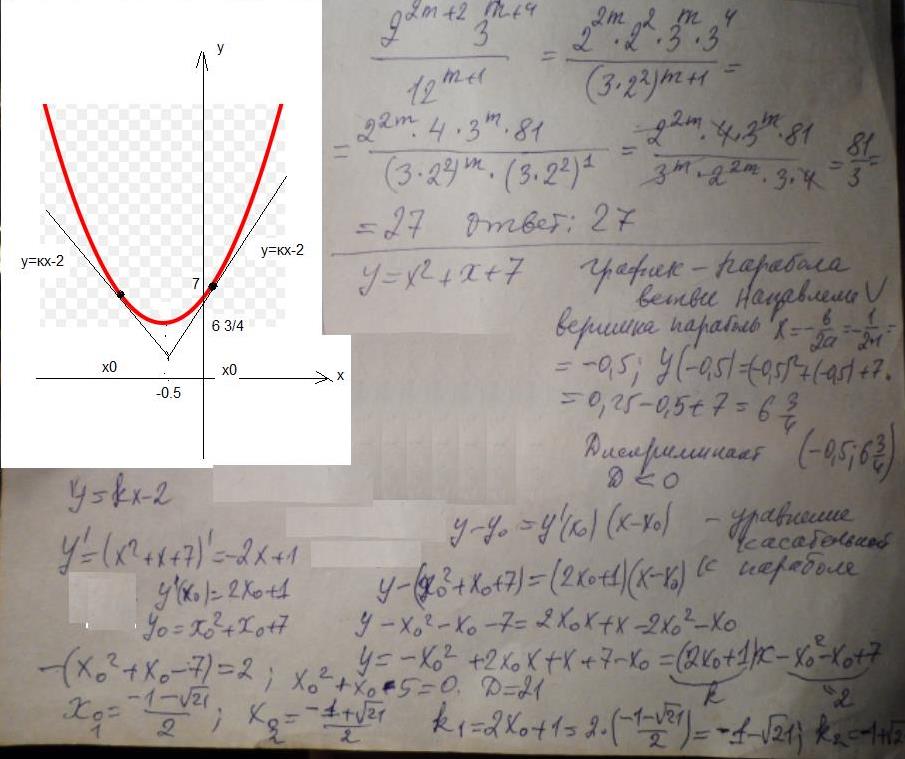 y
y=кx-2
y=кx-2
7
6 3/4
x0
x0
x
-0.5
2^{2m+2} 3^{m+4} / 12^{m+1} = 2^{2m}·2^2·3^m·3^4 / (3·2^2)^{m+1} =
= 2^{2m}·4·3^m·81 / (3·2^2)^m·(3·2^2)^1 = 2^{2m}·4·3^m·81 / 3^m·2^{2m}·3·4 = 81/3 =
= 27 ответ: 27
y=x²+x+7 график – парабола
ветви направлены V
вершина параболы x=-в/2a=-1/2·1=
= -0,5; y(-0,5)=(-0,5)²+(-0,5)+7=
= 0,25-0,5+7=6 3/4
Дискриминант (-0,5; 6 3/4)
D<0
y=kx-2
y-y₀=y'(x₀)(x-x₀) – уравнение
касательной
к параболе
y'=(x²+x+7)'=-2x+1
y'(x₀)=2x₀+1
y-(x₀²+x₀+7)=(2x₀+1)(x-x₀)
y₀=x₀²+x₀+7
y-x₀²-x₀-7=2x₀x+x-2x₀²-x₀
y=-x₀²+2x₀x+x+7-x₀=(2x₀+1)x-x₀²-x₀+7
k -2
-(x₀²+x₀-7)=2; x₀²+x₀-5=0. D=21
x₀₁=(-1-√21)/2; x₀₂=(-1+√21)/2 k₁=2x₀+1=2·((-1-√21)/2)=-1-√21; k₂=-1+√2